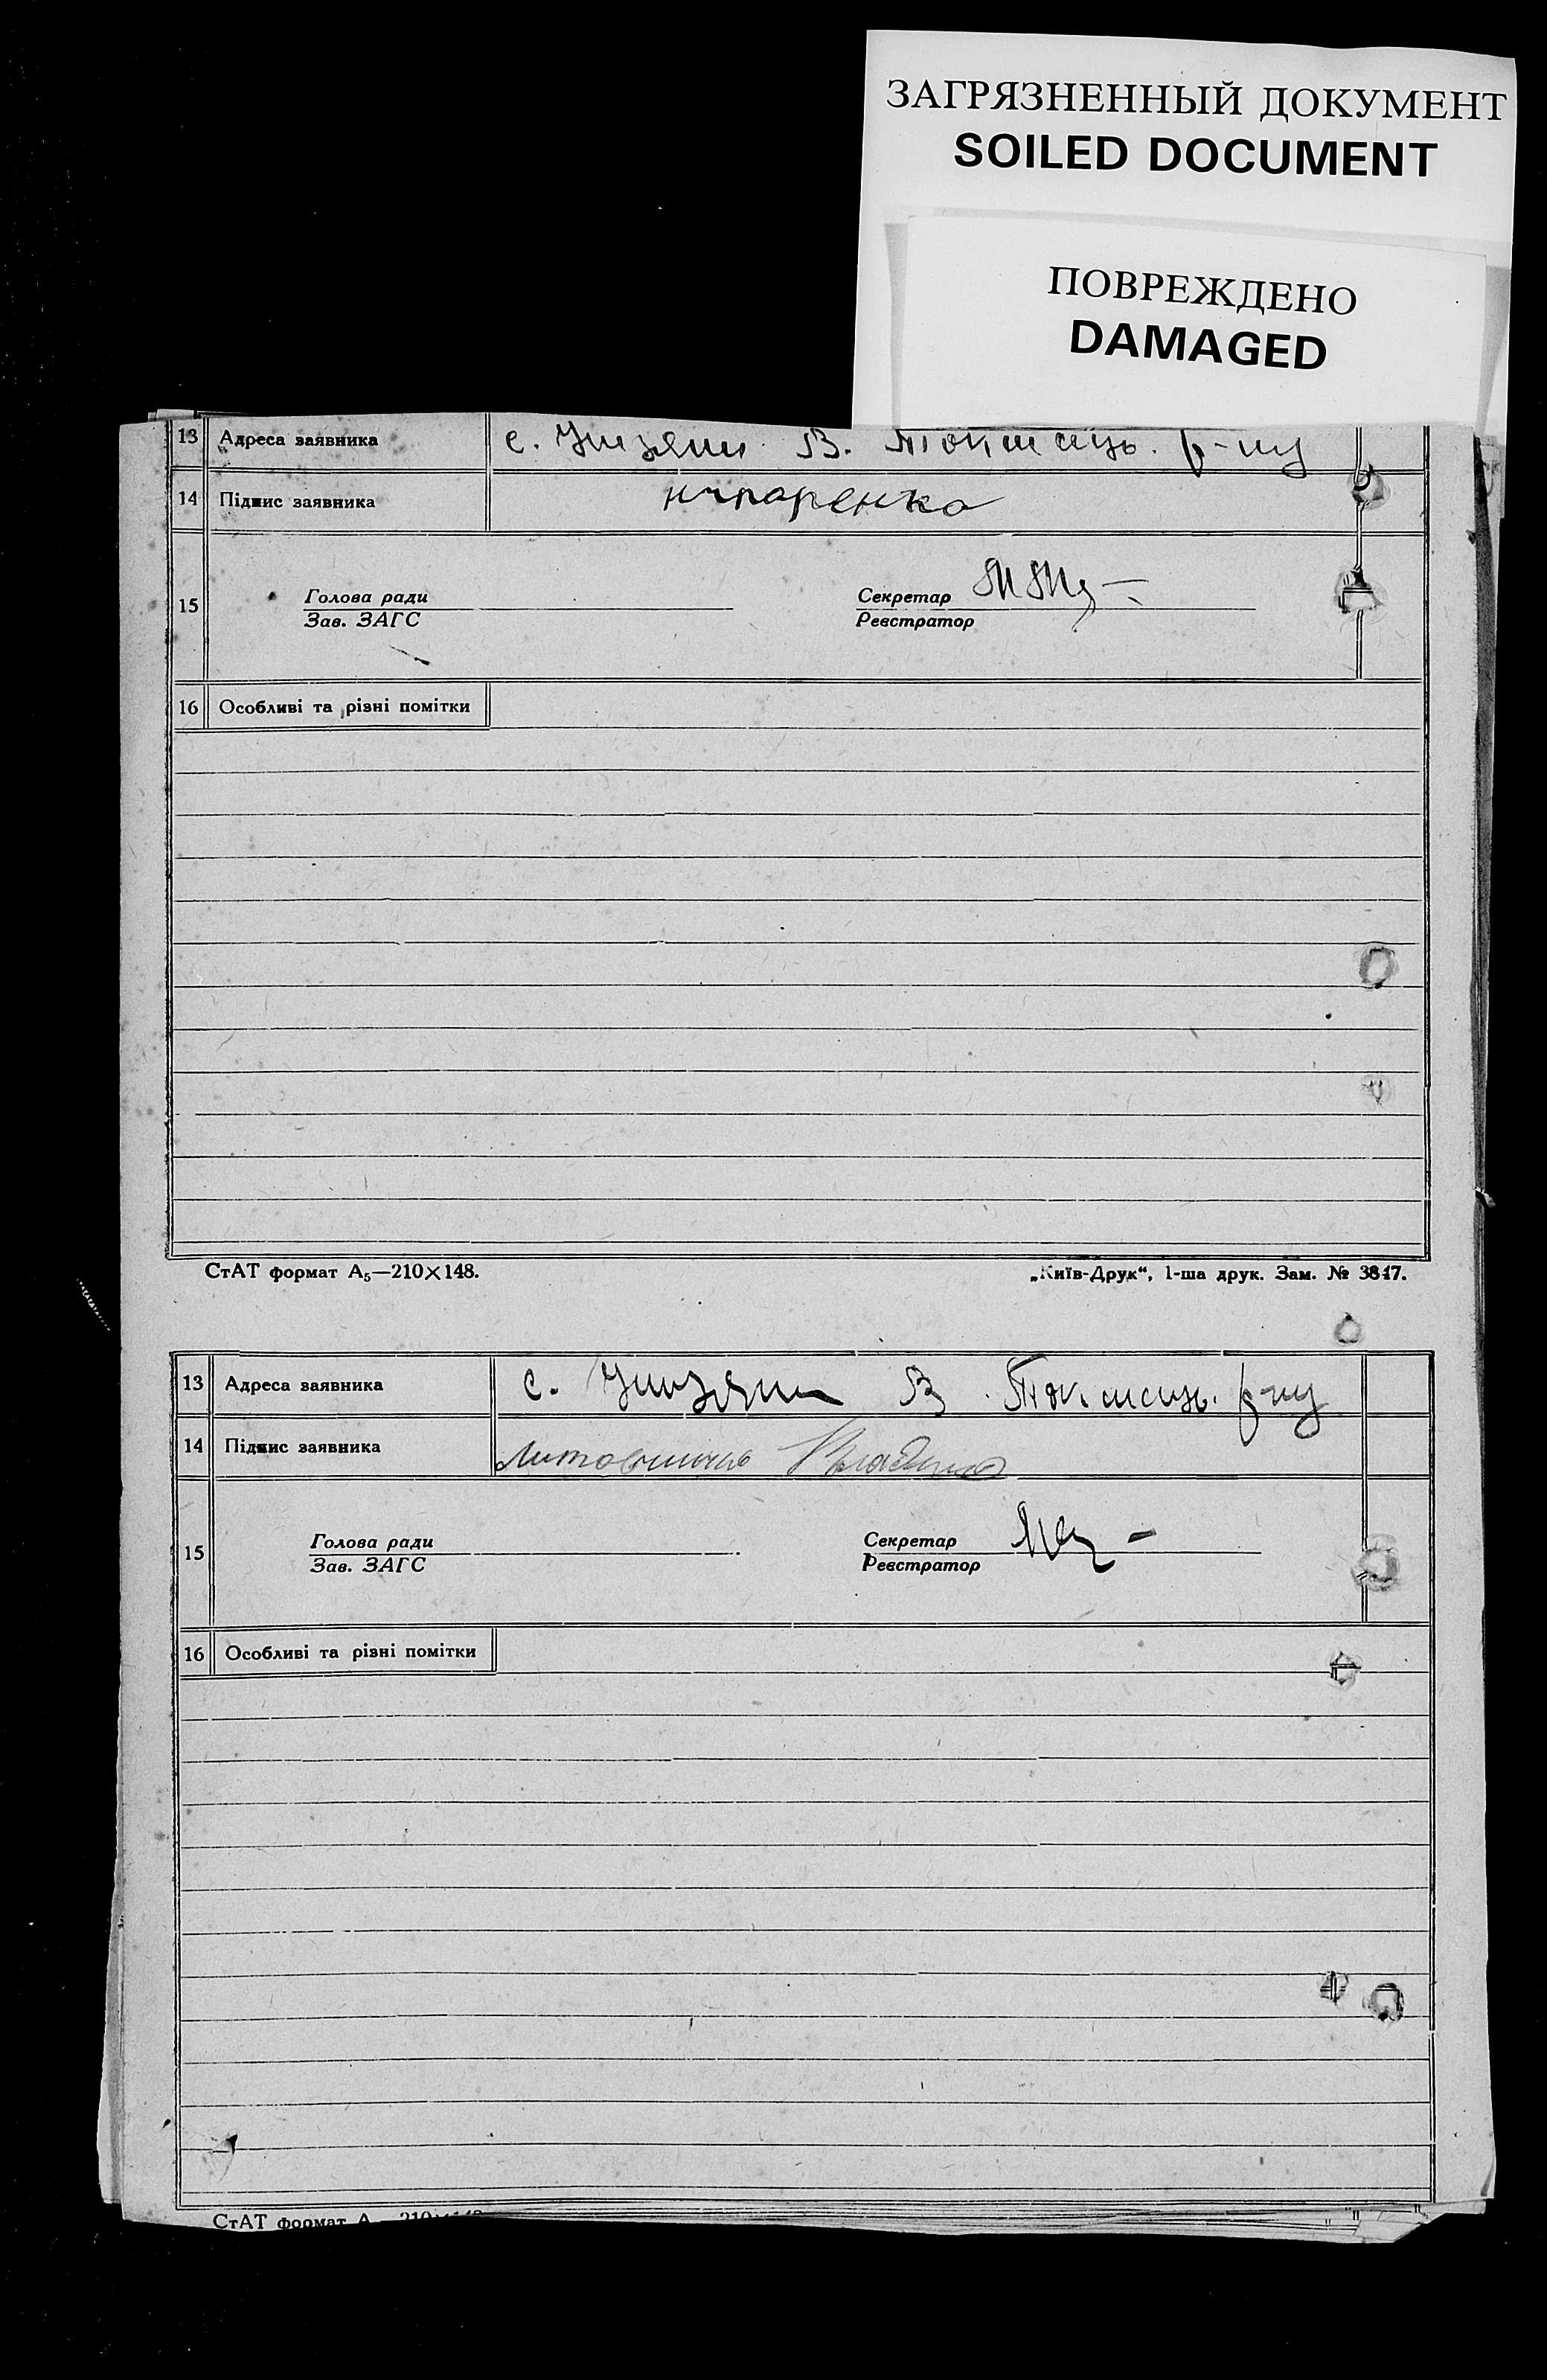 ЗАГРЯЗНЕННЫЙ ДОКУМЕНТ
SOILED DOCUMENT
ПОВРЕЖДЕНО
DAMAGED
13 Адреса заявника с. В. Токмаць. р-ну
14 Підпис заявника
Голова ради Секретар
15
Зав. ЗАГС Реєстратор
16 Особливі та різні помітки
СтАТ формат А₅—210×148. „Київ-Друк“, 1-ша друк. Зам. № 3847.
13 Адреса заявника с. В. Токмаць. р-ну
14 Підпис заявника
Голова ради Секретар
15
Зав. ЗАГС Реєстратор
16 Особливі та різні помітки
СтАТ формат А